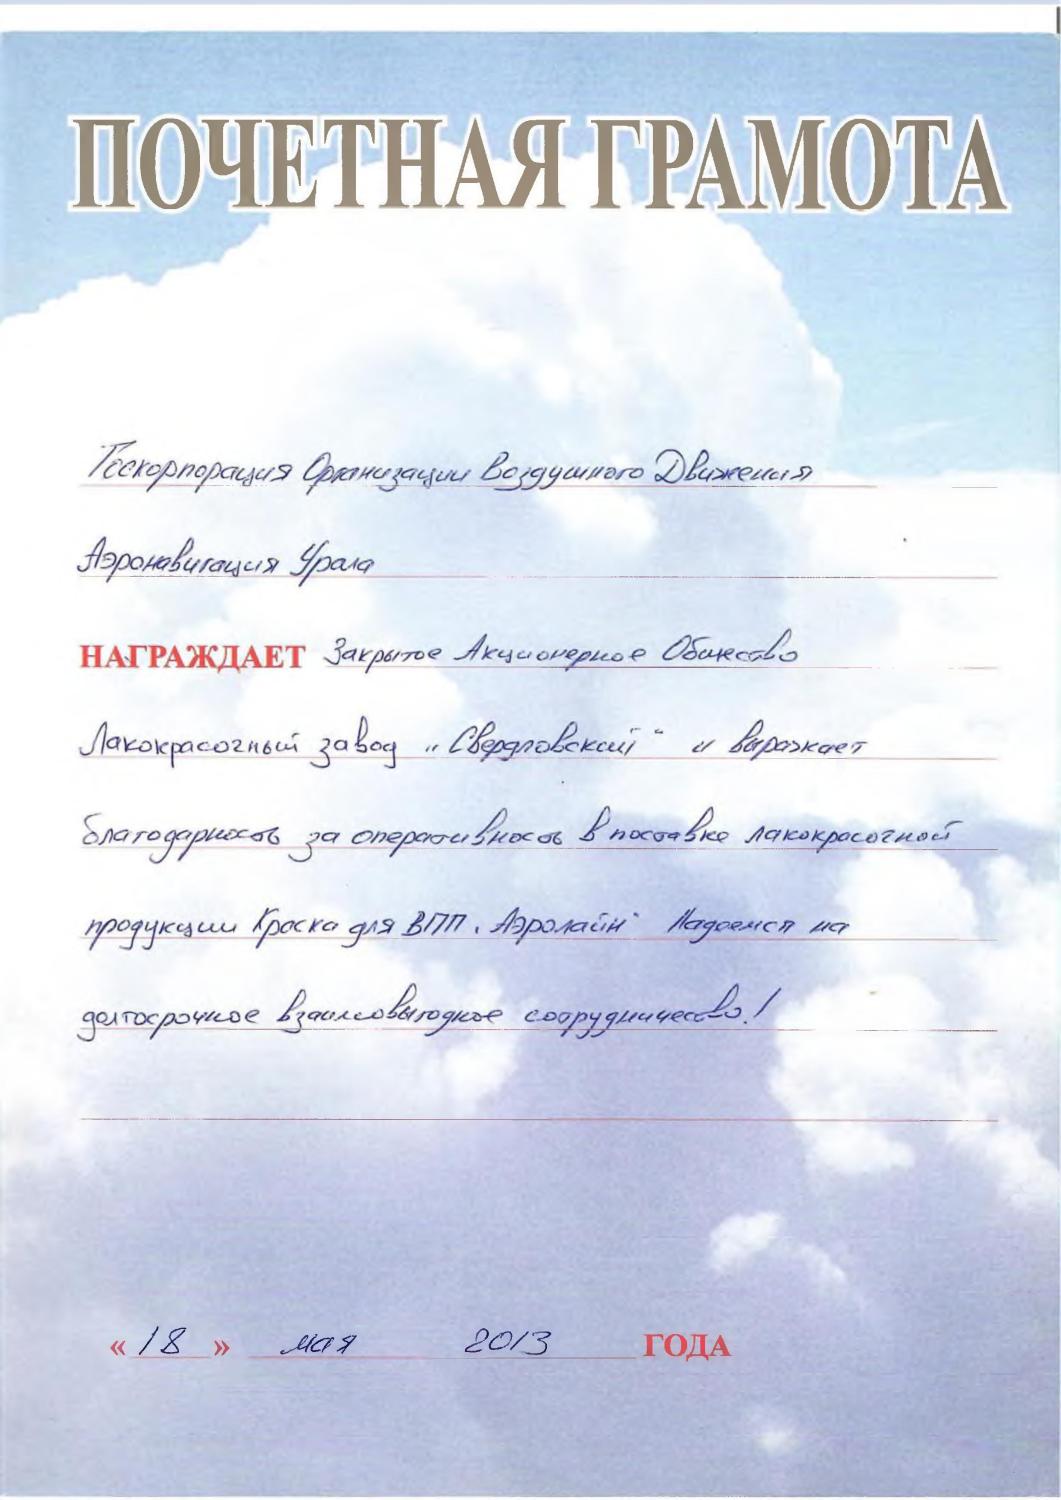 ПОЧЕТНАЯ ГРАМОТА
Госкорпорация Организации Воздушного Движения
Аэронавигация Урала
НАГРАЖДАЕТ Закрытое Акционерное Общество
Лакокрасочный завод „Свердловский“ и выражает
благодарность за оперативность в поставке лакокрасочной
продукции Краска для ВПП „Аэролайн“ Надеемся на
долгосрочное взаимовыгодное сотрудничество!
« 18 » мая 2013 ГОДА